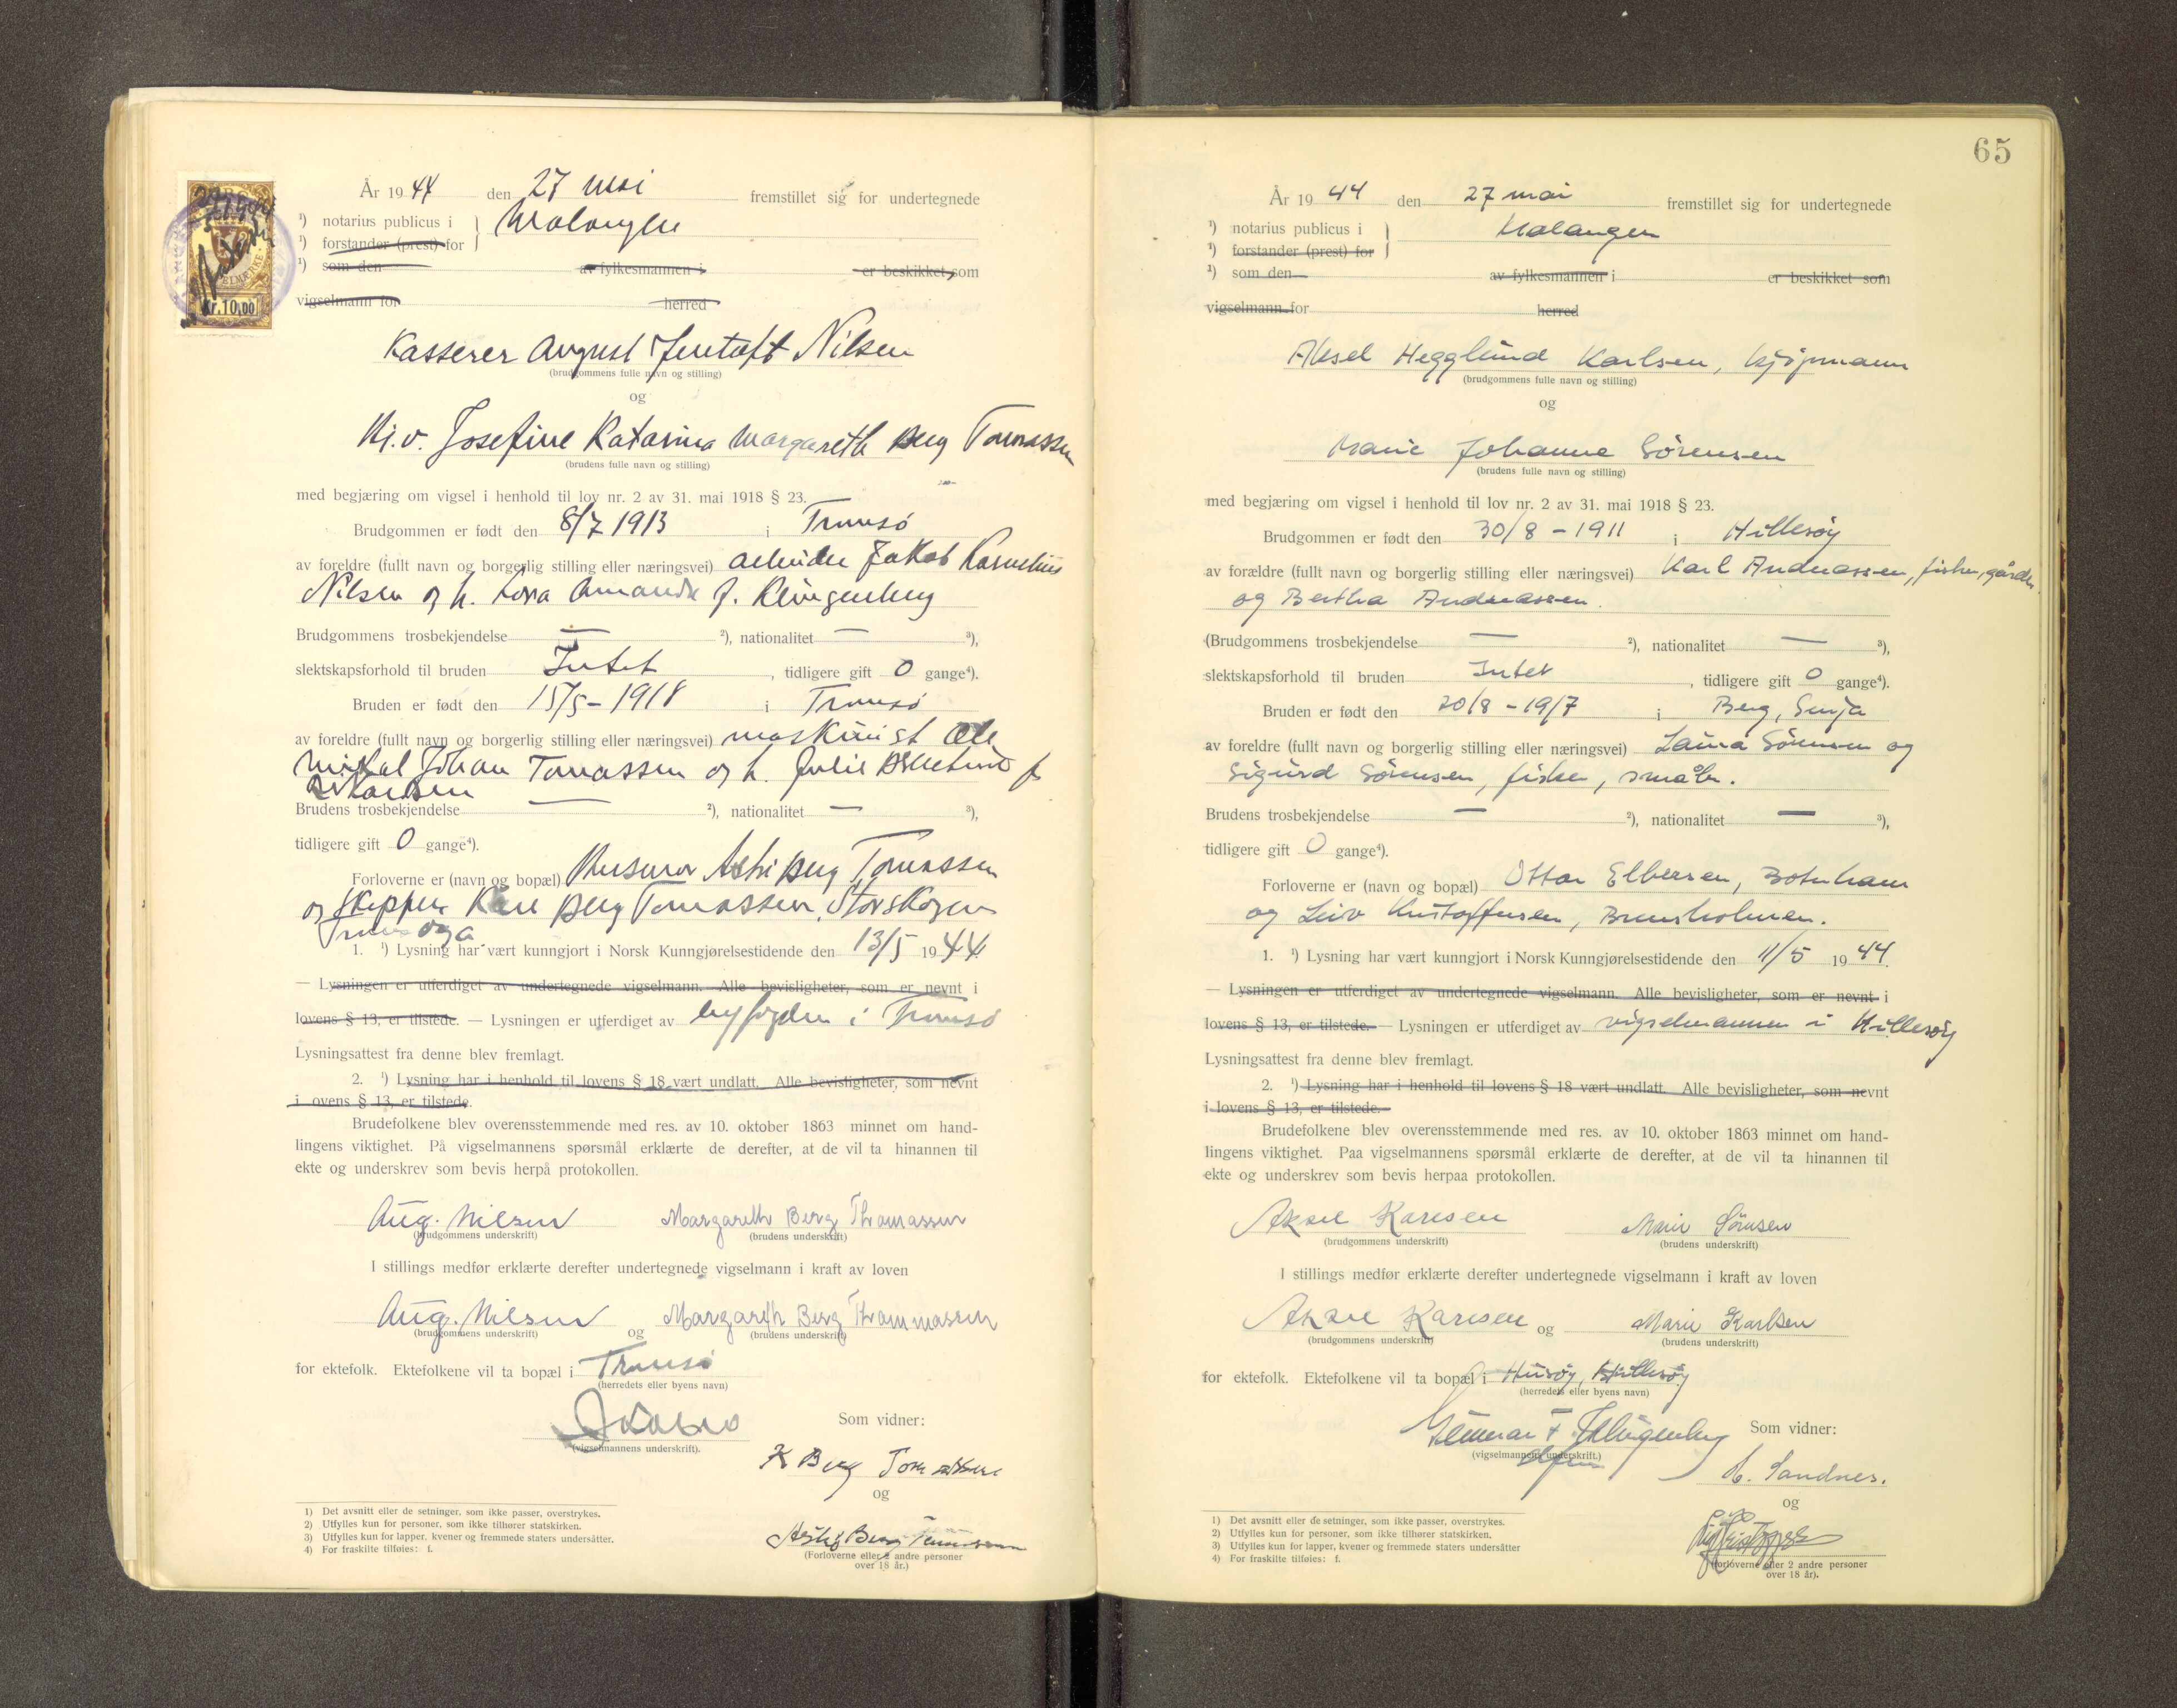 År 1944 den 27 mai fremstillet sig for undertegnede
¹) notarius publicus i Malangen
¹) forstander (prest) for
¹) som den av fylkesmannen i er beskikket som
vigselmann for herred
Kr.10,00
Kasserer August Jentoft Nilsen
(brudgommens fulle navn og stilling)
og
Josefine Katarina Margareth Berg Tomassen
(brudens fulle navn og stilling)
med begjæring om vigsel i henhold til lov nr. 2 av 31. mai 1918 § 23.
Brudgommen er født den 8/7 1913 i Tromsö
av foreldre (fullt navn og borgerlig stilling eller næringsvei) arbeider Jakob Kornelius
Nilsen og h. Lova Amanda f. Klingenberg
Brudgommens trosbekjendelse — ²), nationalitet — ³),
slektskapsforhold til bruden Intet, tidligere gift 0 gange⁴).
Bruden er født den 15/5 - 1918 i Tromsö
av foreldre (fullt navn og borgerlig stilling eller næringsvei) maskinist Ole
Mikal Johan Tomassen og h. Julie f.
Brudens trosbekjendelse — ²), nationalitet — ³),
tidligere gift 0 gange⁴).
Forloverne er (navn og bopæl) Husmor Berg Tomassen
og skipper Kåre Berg Tomassen, Storskogen
1. ¹) Lysning har vært kunngjort i Norsk Kunngjørelsestidende den 13/5 1944.
— Lysningen er utferdiget av undertegnede vigselmann. Alle bevisligheter, som er nevnt i
lovens § 13, er tilstede. — Lysningen er utferdiget av byfogden i Tromsö
Lysningsattest fra denne blev fremlagt.
2. ¹) Lysning har i henhold til lovens § 18 vært undlatt. Alle bevisligheter, som nevnt
i ovens § 13, er tilstede.
Brudefolkene blev overensstemmende med res. av 10. oktober 1863 minnet om hand-
lingens viktighet. På vigselmannens spørsmål erklærte de derefter, at de vil ta hinannen til
ekte og underskrev som bevis herpå protokollen.
Aug. Nilsen Margareth Berg Thomassen
(brudgommens underskrift) (brudens underskrift)
I stillings medfør erklærte derefter undertegnede vigselmann i kraft av loven
Aug. Nilsen og Margareth Berg Thommassen
(brudgommens underskrift) (brudens underskrift)
for ektefolk. Ektefolkene vil ta bopæl i Tromsö
(herredets eller byens navn)
Som vidner:
(vigselmannens underskrift).
K Berg Tomassen
og
Berg Tomassen
(Forloverne eller 2 andre personer
over 18 år.)
1) Det avsnitt eller de setninger, som ikke passer, overstrykes.
2) Utfylles kun for personer, som ikke tilhører statskirken.
3) Utfylles kun for lapper, kvener og fremmede staters undersåtter.
4) For fraskilte tilføies: f.
65
År 1944 den 27 mai fremstillet sig for undertegnede
¹) notarius publicus i Malangen
¹) forstander (prest) for
¹) som den av fylkesmannen i er beskikket som
vigselmann for herred
Aksel Hegglund Karlsen, kjöpmann
(brudgommens fulle navn og stilling)
og
Marie Johanne Sörensen
(brudens fulle navn og stilling)
med begjæring om vigsel i henhold til lov nr. 2 av 31. mai 1918 § 23.
Brudgommen er født den 30/8 - 1911 i Hillesöy
av forældre (fullt navn og borgerlig stilling eller næringsvei) Karl Andreassen, fisker, gårdbr.
og Bertha Andreassen.
(Brudgommens trosbekjendelse — ²), nationalitet — ³),
slektskapsforhold til bruden Intet, tidligere gift 0 gange⁴).
Bruden er født den 20/8 - 1917 i Berg, Senja
av foreldre (fullt navn og borgerlig stilling eller næringsvei) Laura Sörensen og
Sigurd Sörensen, fisker, småbr.
Brudens trosbekjendelse — ²), nationalitet — ³),
tidligere gift 0 gange⁴).
Forloverne er (navn og bopæl) Ottar Elbersen, Botnhamn
og Leiv Kristoffersen, Brensholmen.
1. ¹) Lysning har vært kunngjort i Norsk Kunngjørelsestidende den 11/5 1944.
— Lysningen er utferdiget av undertegnede vigselmann. Alle bevisligheter, som er nevnt i
lovens § 13, er tilstede. — Lysningen er utferdiget av vigselmannen i Hillesöy
Lysningsattest fra denne blev fremlagt.
2. ¹) Lysning har i henhold til lovens § 18 vært undlatt. Alle bevisligheter, som nevnt
i lovens § 13, er tilstede.
Brudefolkene blev overensstemmende med res. av 10. oktober 1863 minnet om hand-
lingens viktighet. Paa vigselmannens spørsmål erklærte de derefter, at de vil ta hinannen til
ekte og underskrev som bevis herpaa protokollen.
Aksel Karlsen Marie Sörensen
(brudgommens underskrift) (brudens underskrift)
I stillings medfør erklærte derefter undertegnede vigselmann i kraft av loven
Aksel Karlsen og Marie Karlsen
(brudgommens underskrift) (brudens underskrift)
for ektefolk. Ektefolkene vil ta bopæl i Husöy, Hillesöy
(herredets eller byens navn)
Gunnar F Klingenberg Som vidner:
(vigselmannens underskrift.)
Sandnes.
og
(forloverne eller 2 andre personer
over 18 år).
1) Det avsnitt eller de setninger, som ikke passer, overstrykes.
2) Utfylles kun for personer, som ikke tilhører statskirken.
3) Utfylles kun for lapper, kvener og fremmede staters undersåtter
4) For fraskilte tilføies: f.